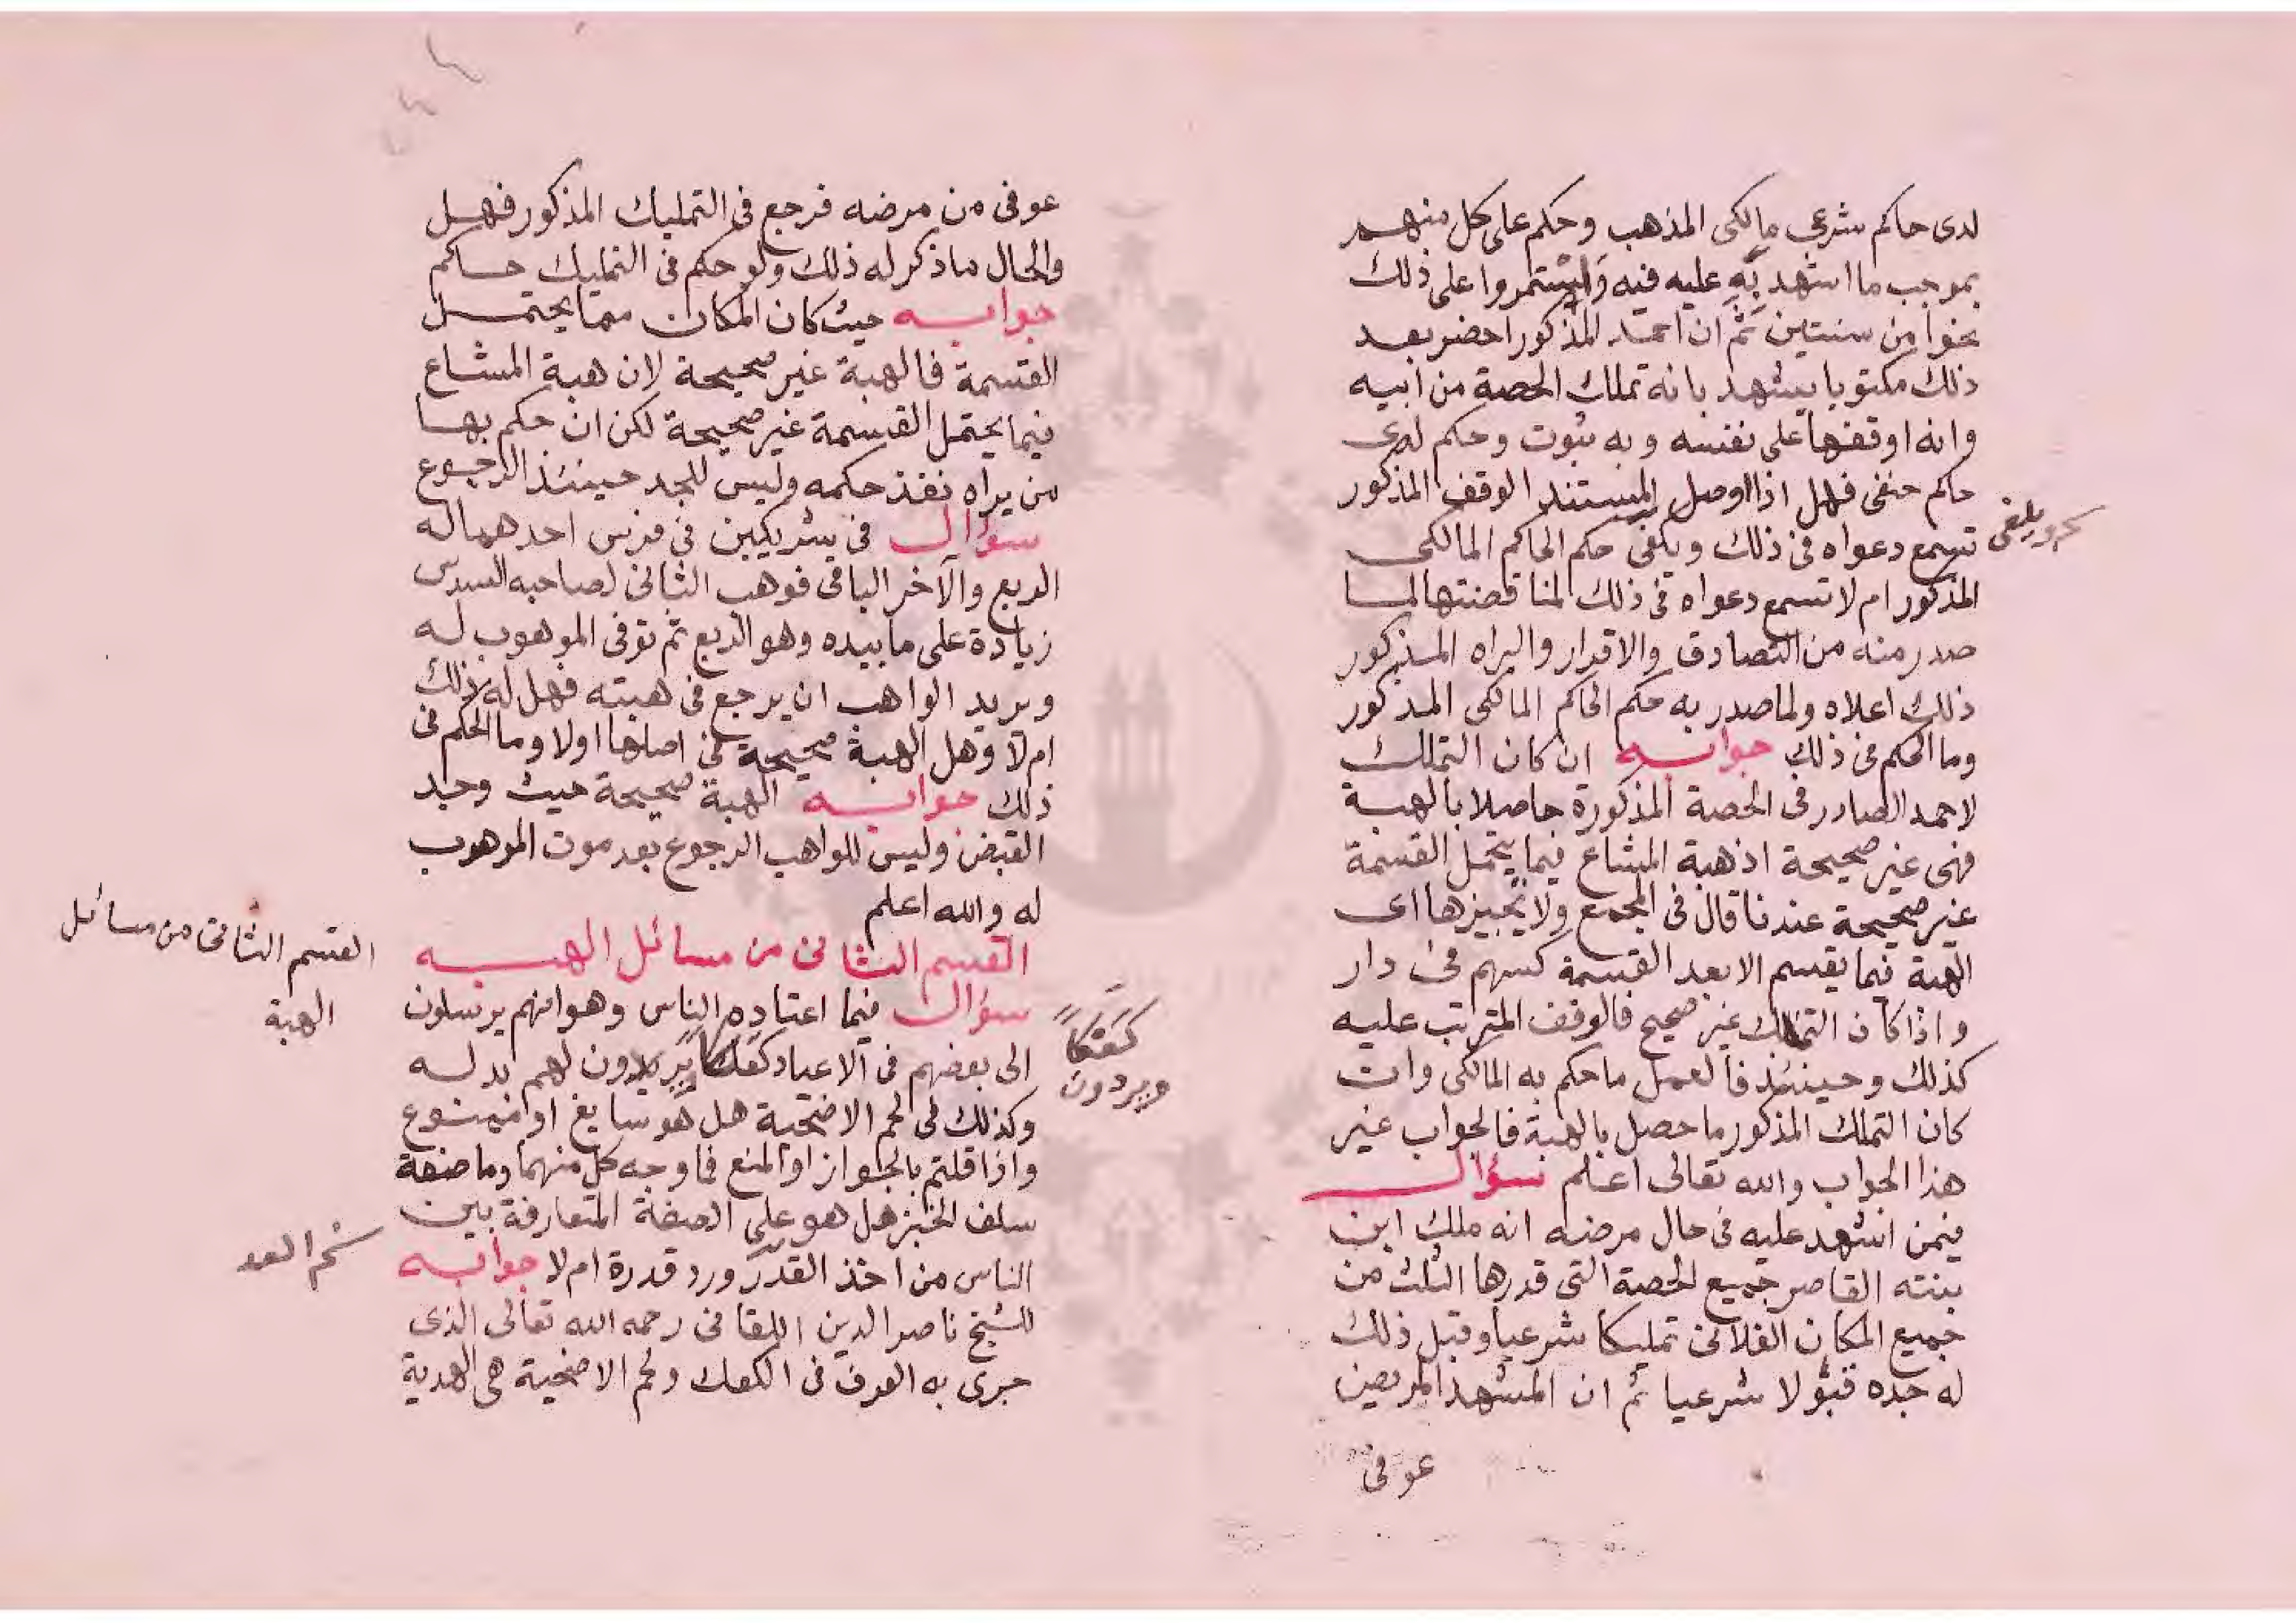 لدى حاكم شرعي مالكى المذهب وحكم على كل منهم
بموجب ما اشهد به عليه فيه واستمروا على ذلك
نحوا من سنتين ثم ان احمد المذكور احضر بعد
ذلك مكتوبا يشهد بانه تملك الحصة من ابيه
وانه اوقفها على نفسه وبه ثبوت وحكم لدى
حاكم حنفى فهل اذا اوصل المستند الوقف المذكور
تسمع دعواه فى ذلك ويكفى حكم الحاكم المالكى
المذكور ام لا تسمع دعواه فى ذلك لمناقضتها لما
صدر منه من التصادق والاقرار والبراه المذكور
ذلك اعلاه ولما صدر به حكم الحاكم المالكى المذكور
وما الحكم فى ذلك جوابه ان كان التملك
لاحمد الصادر فى الحصة المذكورة حاصلا بالهبة
فهى غير صحيحة اذ هبة المشاع فيما يحتمل القسمة
غير صحيحة عندنا قال فى المجمع ولا نجيزها اى
الهبة فيما يقسم الا بعد القسمة كسهم فى دار
واذا كان التملك غير صحيح فالوقف المترتب عليه
كذلك وحينئذ فالعمل ما حكم به المالكى وان
كان التملك المذكور ما حصل بالهبة فالجواب غير
هذا الجواب والله تعالى اعلم سؤال
فيمن اشهد عليه فى حال مرضه انه ملك ابن
بنته القاصر جميع الحصة التى قدرها الثلث من
جميع المكان الفلانى تمليكا شرعيا وقبل ذلك
له جده قبولا شرعيا ثم ان المشهد المريض
عوفى
عوفى من مرضه فرجع فى التمليك المذكور فهل
والحال ما ذكر له ذلك ولو حكم فى التمليك حاكم
جوابه حيث كان المكان مما يحتمل
القسمة فالهبة غير صحيحة لان هبة المشاع
فيما يحتمل القسمة غير صحيحة لكن ان حكم بها
من يراه نفذ حكمه وليس للجد حينئذ الرجوع
سؤال فى شريكين فى فرس احدهما له
الربع والآخر الباقى فوهب الثانى لصاحبه السدس
زيادة على ما بيده وهو الربع ثم توفى الموهوب له
ويريد الواهب ان يرجع فى هبته فهل له ذلك
ام لا وهل الهبة صحيحة فى اصلها اولا وما الحكم فى
ذلك جوابه الهبة صحيحة حيث وجد
القبض وليس للواهب الرجوع بعد موت الموهوب
له والله اعلم
القسم الثانى من مسائل الهبه
القسم الثانى من مسائل
الهبة
سؤال فيما اعتاده الناس وهو انهم يرسلون
الى بعضهم فى الاعياد كعكا يردون لهم بدله
كعكا
ويردون
وكذلك فى لحم الاضحية هل هو سايغ او ممنوع
واذا قلتم بالجواز او المنع فما وجه كل منهما وما صفة
سلف الخبز هل هو على الصفة المتعارفة بين
الناس من اخذ القدر ورد قدره ام لا جوابه
للشيخ ناصر الدين اللقانى رحمه الله تعالى الذى
جرى به العرف فى الكعك ولحم الاضحية هى الهدية